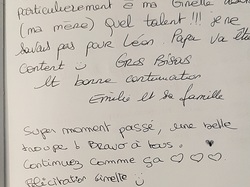 particulièrement à ma Ginette
(ma mère) Quel talent !!! Je ne
savais pas pour Léon. Papa va être
content ☺ Gros Bisous
et bonne continuation
Emilie et sa famille
Super moment passé, une belle
troupe ! Bravo à tous.
Continuez comme ça ♡ ♡ ♡.
Félicitation Ginette ☺